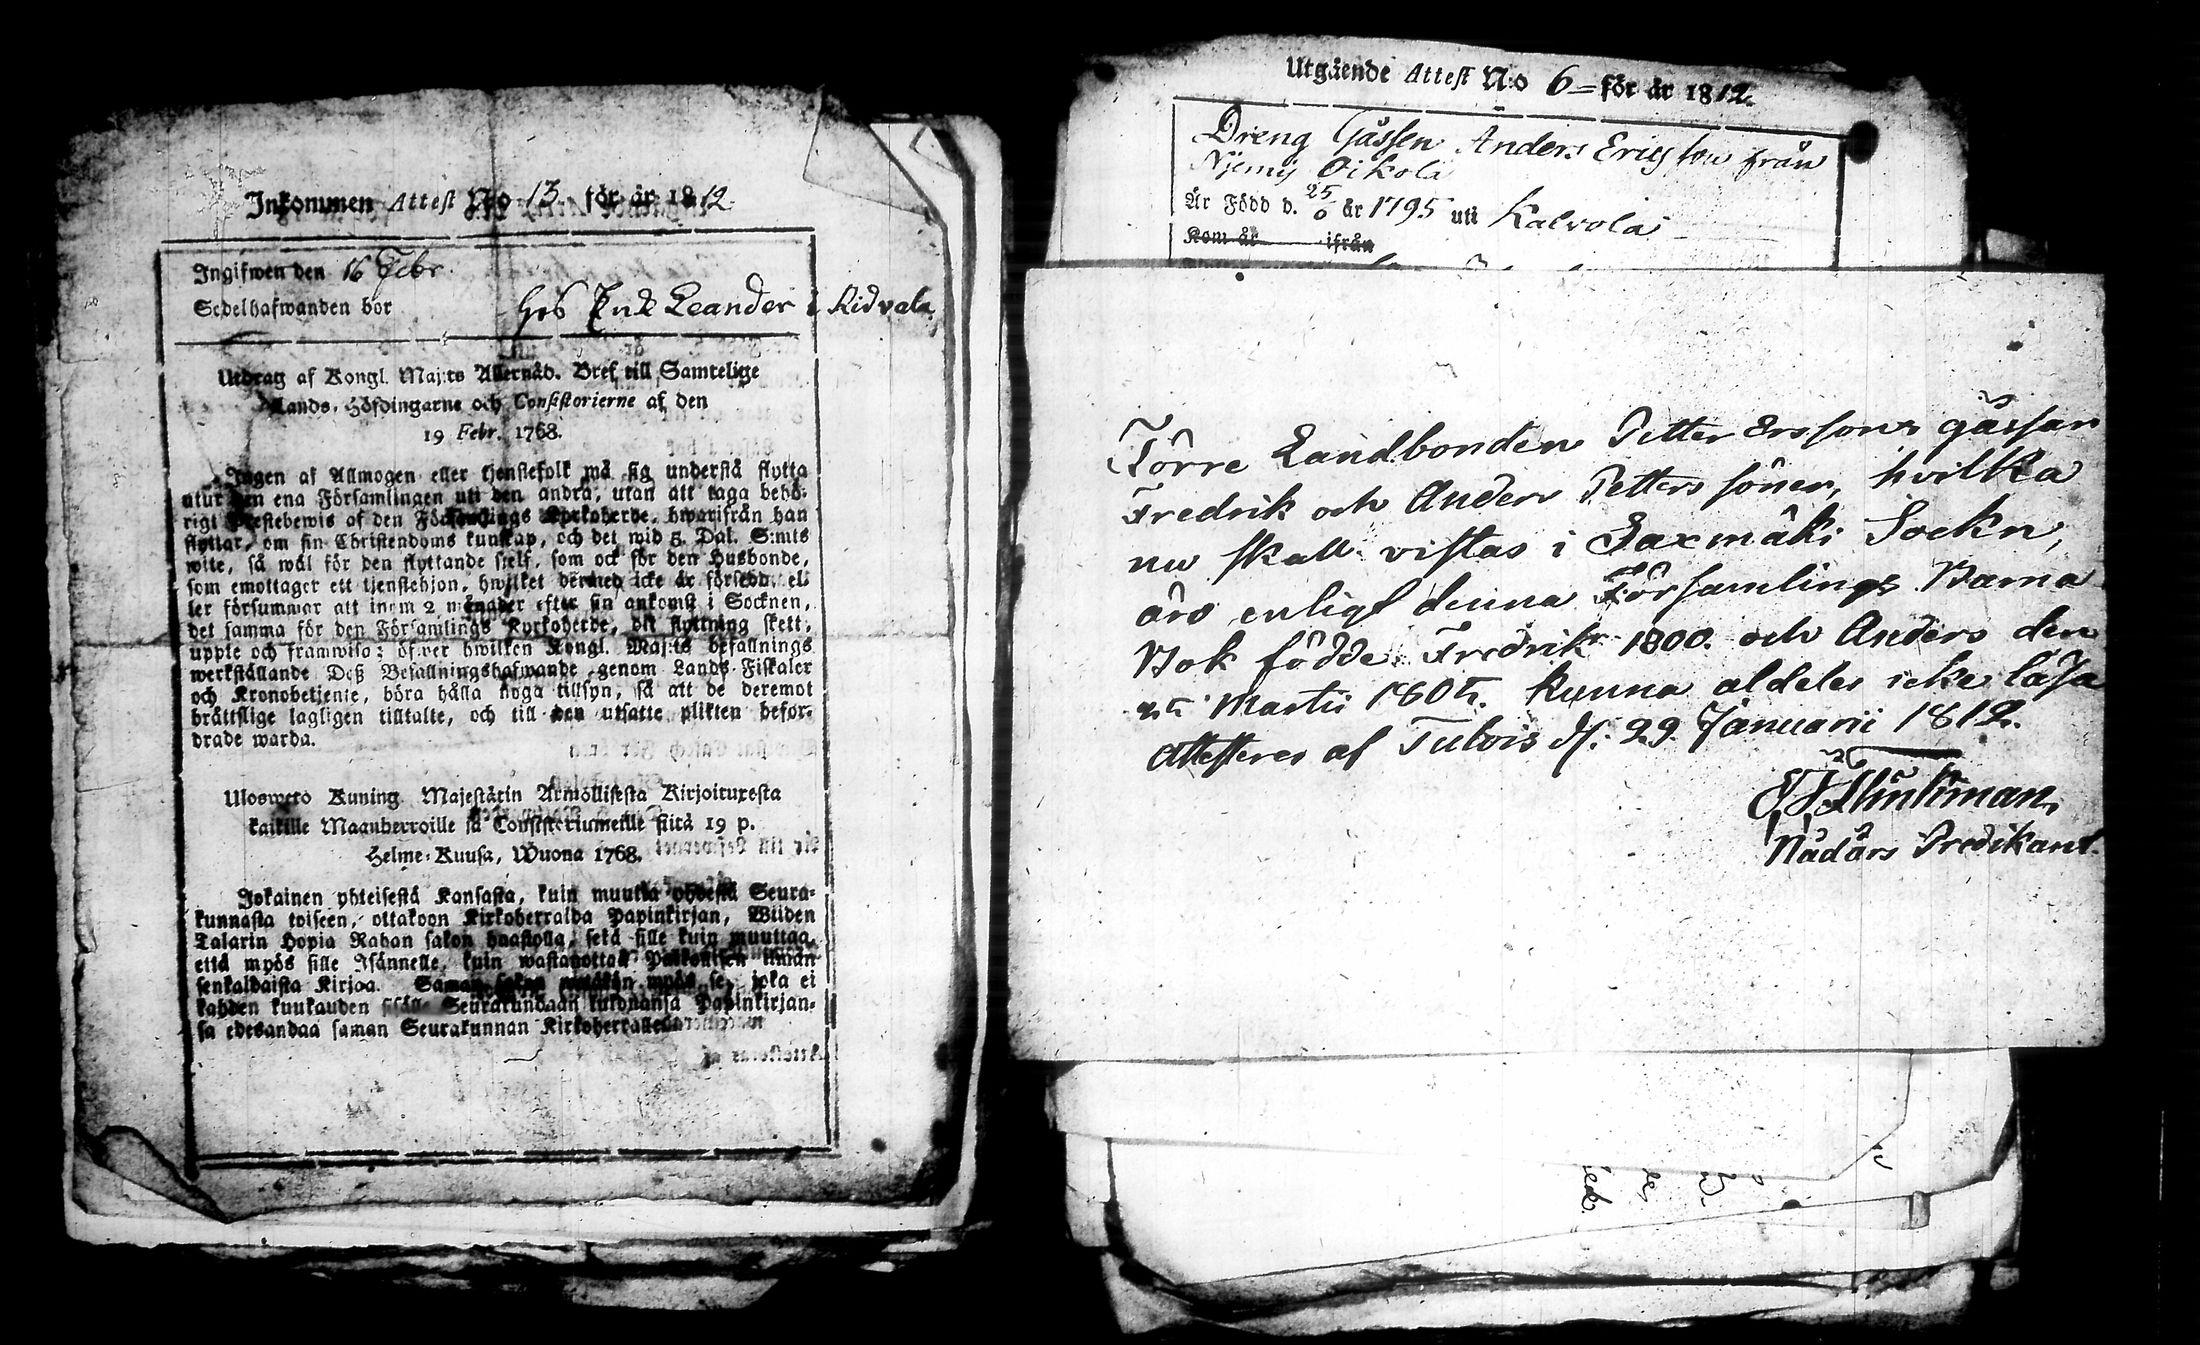 Inkommen Attest No 13. för år 1812.
Ingifwen den 16 Febr.
Sedelhafwanden bor hos Leander i Ridvala
Utdrag af Kongl. Maj:ts Allernåd. Bref till Samtelige
Lands-Höfdingarne och Consistorierne af den
19 Febr. 1768.
Ingen af Allmogen eller tjenstefolk må sig understå flytta
utur den ena Församlingen uti den andra, utan att taga behö-
rigt Prestebewis af den Församlings Kyrkoherde, hwarifrån han
flyttar, om sin Christendoms kunskap, och det wid 5 Dal. S:mts
wite, så wäl för den flyttande sjelf, som ock för den Husbonde,
som emottager ett tjenstehjon, hwilket dermed icke är försedd, el-
ler försummar att inom 2 månader efter sin ankomst i Socknen,
det samma för den Församlings Kyrkoherde, dit flyttning skett,
uppte och framwisa; öfwer hwilken Kongl. Maj:ts befallnings
werkställande Deß Befallningshafwande genom Lands-Fiskaler
och Kronobetjente, böra hålla noga tillsyn, så att de deremot
bråttslige lagligen tilltalte, och till den utsatte plikten befor-
drade warda.
Uloswето Kuning. Majestätin Armollisesta Kirjoituxesta
kaikille Maanherroille ja Consistoriumeille siitä 19 p.
Helme-Kuusa, Wuona 1768.
Jokainen yhteisestä Kansasta, kuin muutta yhdestä Seura-
kunnasta toiseen, ottakoon Kirkoherralda Papinkirjan, Wiiden
Talarin Hopia Rahan sakon haastolla, sekä sille kuin muuttaa,
että myös sille Isännelle, kuin wastanottaa Palkollisen ilman
senkaldaista Kirjaa. Saman sakon wetäkön myös se, joka ei
kahden kuukauden sisällä Seurakundaan tulduansa Papinkirjan-
sa edesandaa saman Seurakunnan Kirkoherralle.
Utgående Attest N:o 6 för år 1812.
Dreng Gåssen Anders Ericsson från
Oikola
Är Född d. 25/6 år 1795 uti Kalvola
Kom år ifrån
Förre Landbonden Petter Erssons gåssar
Fredrik och Anders Petters söner, hvilka
nu skall vistas i Saxmäki Sockn,
äro enligt denna Församlings Barna
Bok födde Fredrik 1800. och Anders den
Martii 1805. kunna aldeles icke läsa
Attesteres af Tulois d. 29 Januarii 1812.
Nådårs Predikant.